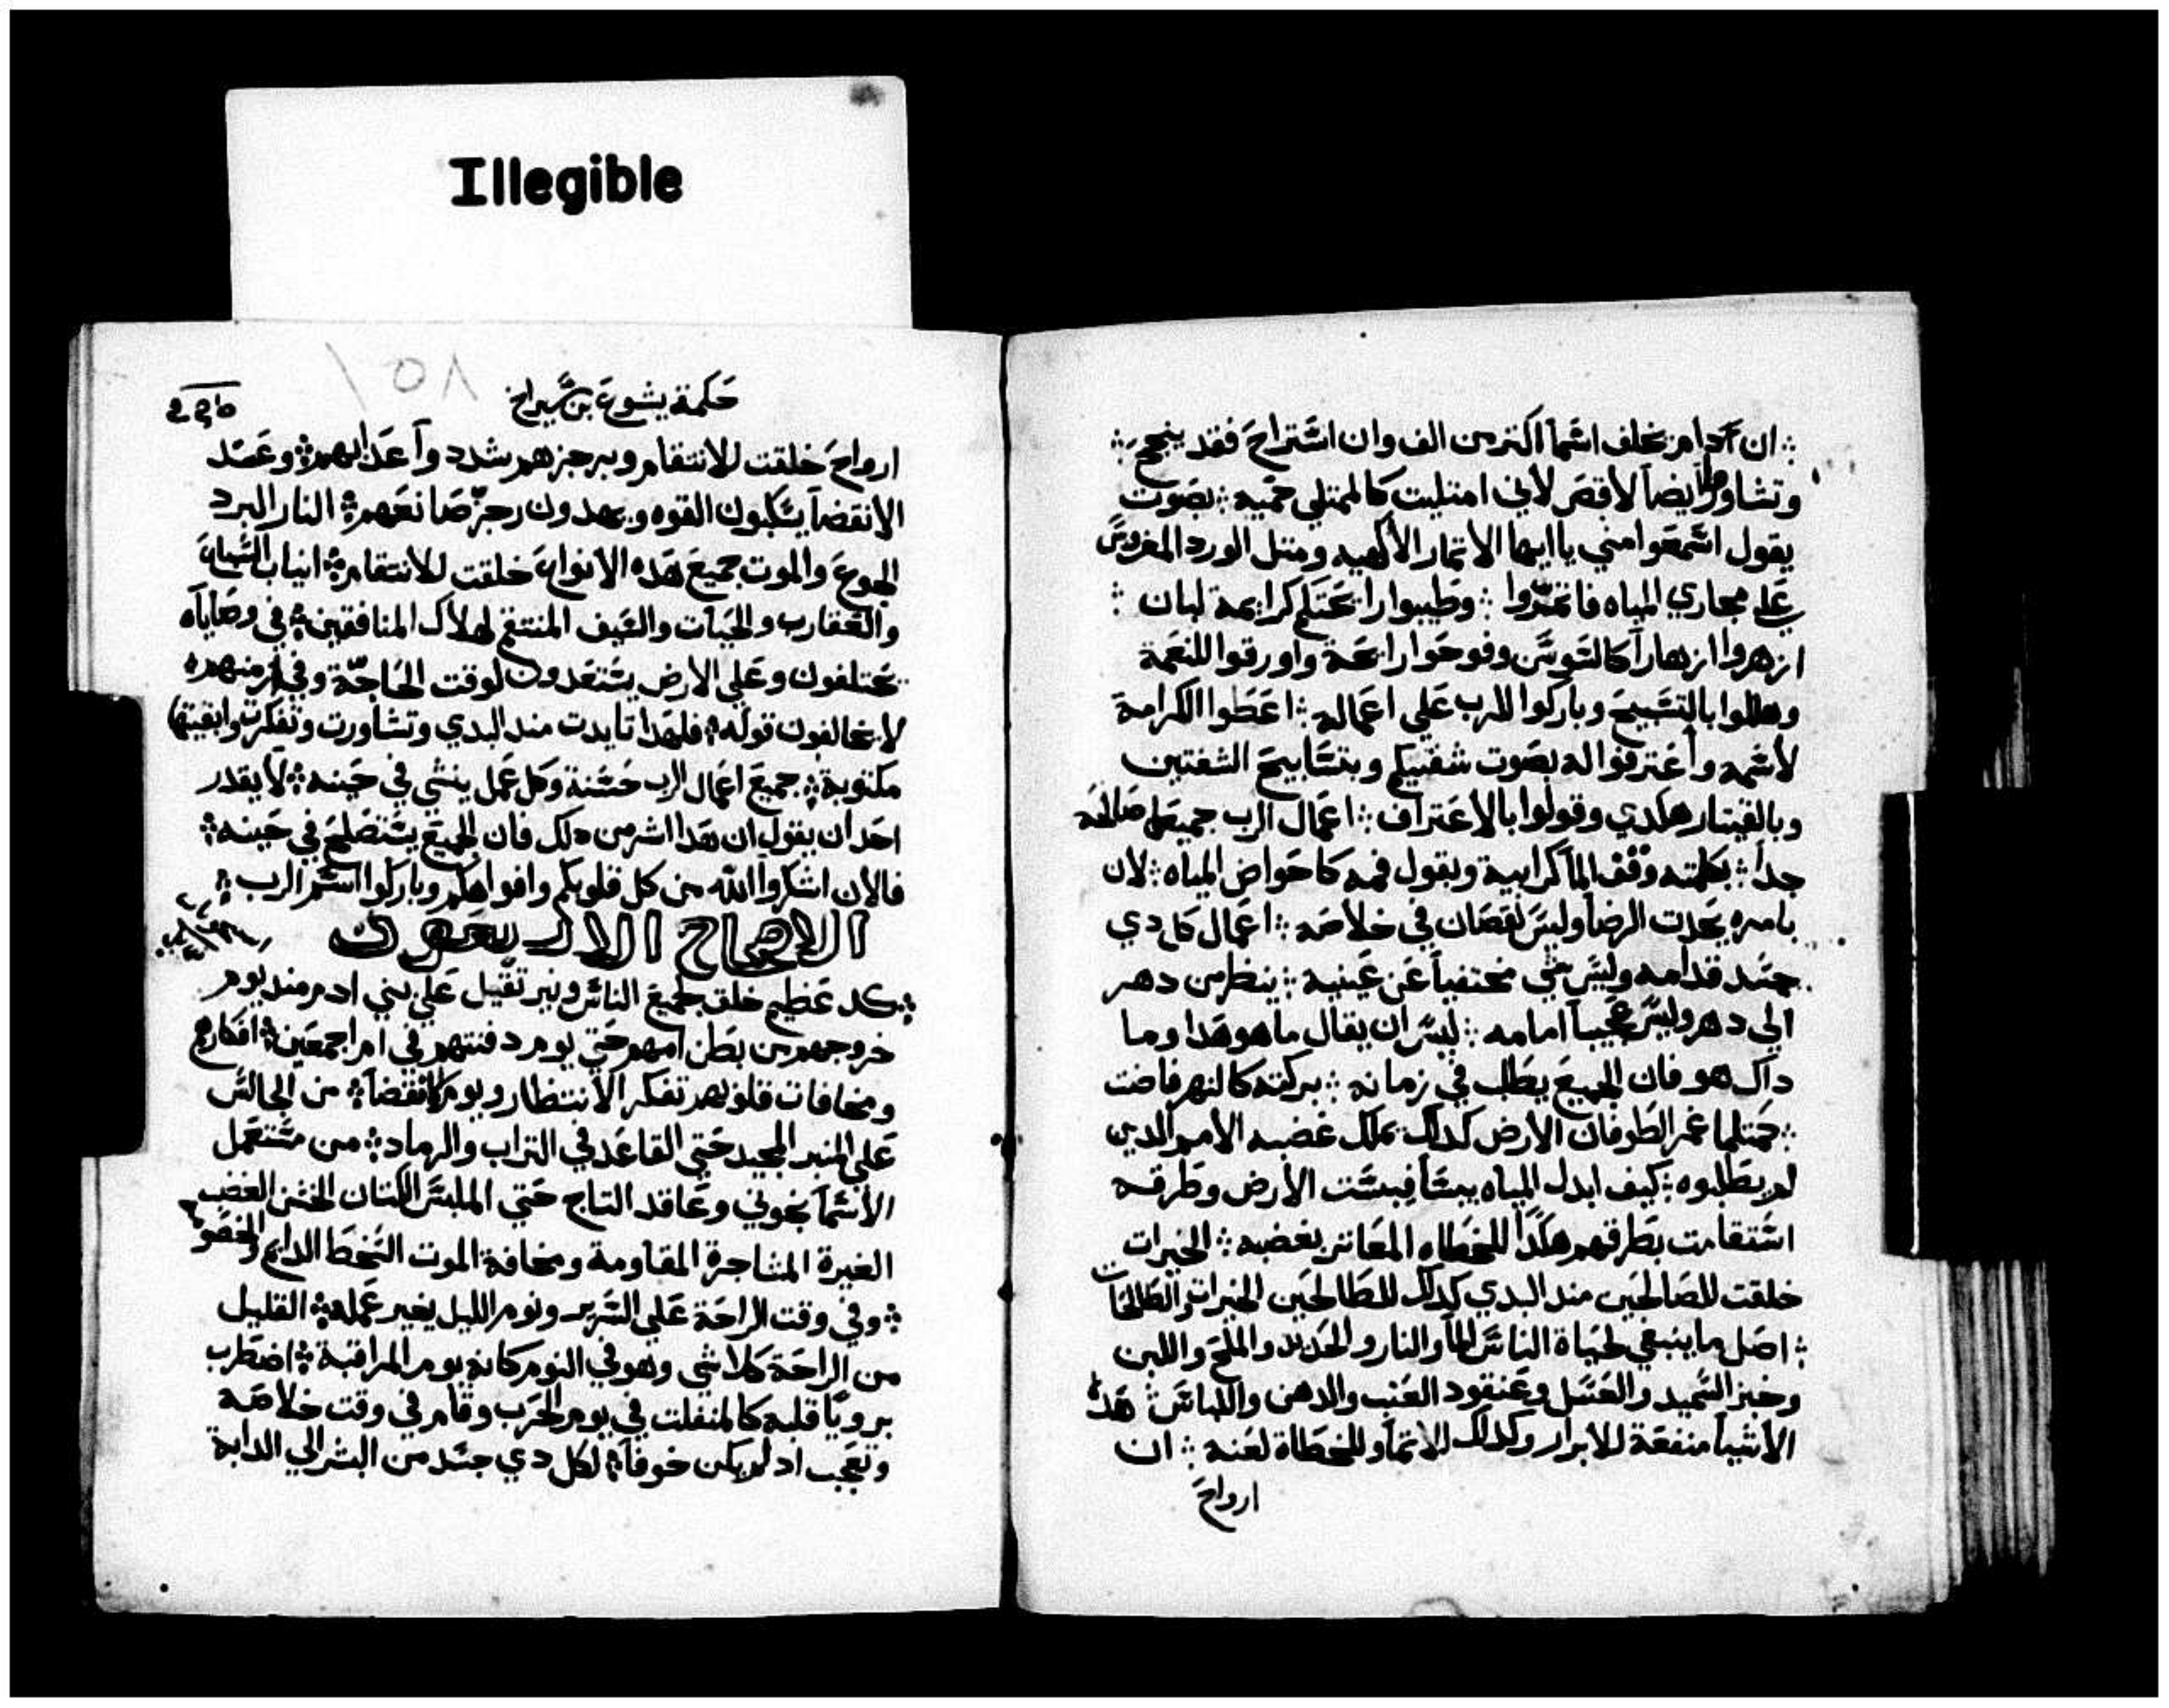 Illegible
ان ادامر يخلف اسما اكتر من الف وان استراح فقد ينجح
وتشاورا ايضا لاقص لاني امتليت كالممتلي حميه بصوت
يقول اسمعوا مني يا ايها الاتمار الالهيه ومتل الورد المغروس
علي مجاري المياه فاتمروا وطيبوا رايحتكم كرايحة لبان
ازهروا ازهارا كالسوسن وفوحوا رايحة واورقوا للنعمة
وهللوا بالتسبيح وباركوا للرب علي اعماله اعطوا الكرامة
لاسمه واعترفوا له بصوت شفتيكم وبتسابيح الشفتين
وبالقيتار هكدي وقولوا بالاعتراف اعمال الرب جميعها صالحه
جدا بكلمته وقف الما كرابية وبقول فمه كاحواض المياه لان
بامره يحدت الرضا وليس نقصان في خلاصه اعمال كل دي
جسد قدامه وليس شي مختفيا عن عينيه ينظر من دهر
الي دهر وليس عجيبا امامه ليس ان يقال ما هو هدا وما
داك هو فان الجميع يطلب في زمانه بركته كالنهر فاضت
حمتلما غمر الطوفان الارض كدلك تملك غضبه الامم الدين
لم يطلبوه كيف ابدل المياه يبسا فيبست الارض وطرقه
استقامت بطرقهم هكدا للخطاه المعاتر بغضبه الخيرات
خلقت للصالحين مند البدي كدلك للطالحين الخيرات والطالحات
اصل ما ينبغي لحياة الناس الما والنار والحديد والملح واللبن
وخبز السميد والعسل وعنقود العنب والدهن واللباس هده
الاشيا منفعة للابرار وكدلك للاتما وللخطاة لعنه ان
ارواح
حكمة يشوع بن سيراخ
١٥٨
ارواح خلقت للانتقام وبرجزهم شدد واعدابهم وعند
الانقضا يسكبون القوه ويهدون رجز صانعهم النار البرد
الجوع والموت جميع هده الانواع خلقت للانتقام انياب السباع
والعقارب والحيات والسيف المنتقم لهلاك المنافقين في وصاياه
يختلفون وعلي الارض يستعدون لوقت الحاجة وفي ازمنهم
لا يخالفون قوله فلهدا تايدت مند البدي وتشاورت وتفكرت وابقيتها
مكتوبة جميع اعمال الرب حسنة وكل عمل ينشي في حينه لا يقدر
احد ان يقول ان هدا اشر من دلك فان الجميع يستصلح في حينه
فالان اشكروا الله من كل قلوبكم وافواهكم وباركوا اسم الرب
الاصحاح الاربعون
كد عظيم خلق لجميع الناس ونير تقيل علي بني ادم مند يوم
خروجهم من بطن امهم حتي يوم دفنتهم في ام اجمعين افكارهم
ومخافات قلوبهم تفكر الانتظار ويوم الانقضا من الجالس
علي المنبر المجيد حتي القاعد في التراب والرماد من مستعمل
الاسمانجوني وعاقد التاج حتي الملبس الكتان الخشن الغضب
الغيرة المشاجرة المقاومة ومخافة الموت السخط الدايم والخصومة
وفي وقت الراحة علي السرير ونوم الليل يغير عمله القليل
من الراحة كلا شي وهو في النوم كانه يوم المراقبة اضطرب
برويا قلبه كالمنفلت في يوم الحرب وقام في وقت خلاصه
وتعجب اد لم يكن خوفا لكل دي جسد من البشر الي الدابة